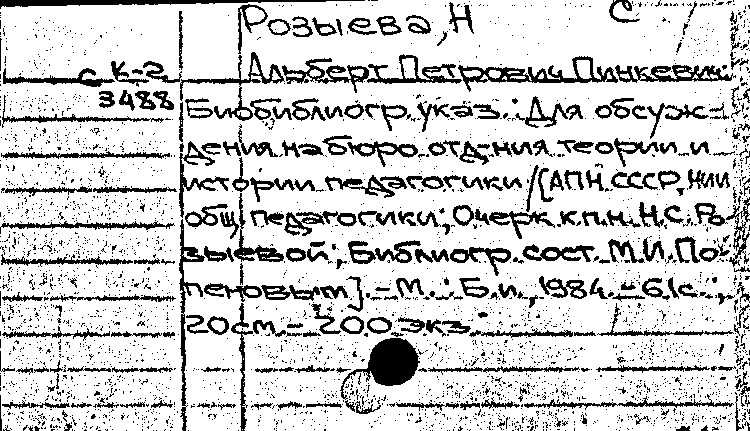 С
Розыева, Н
с К-2
3488
Альберт Петрович Пинкевич:
Биобиблиогр. указ.: Для обсуж-
дения на бюро отд-ния теории и
истории педагогики / [АПН СССР, НИИ
общ. педагогики; Очерк к.п.н. Н.С. Ро-
зыевой; Библиогр. сост. М.И. По-
пеновым]. - М.: Б.и., 1984. - 61с.;
20см. - 200 экз.